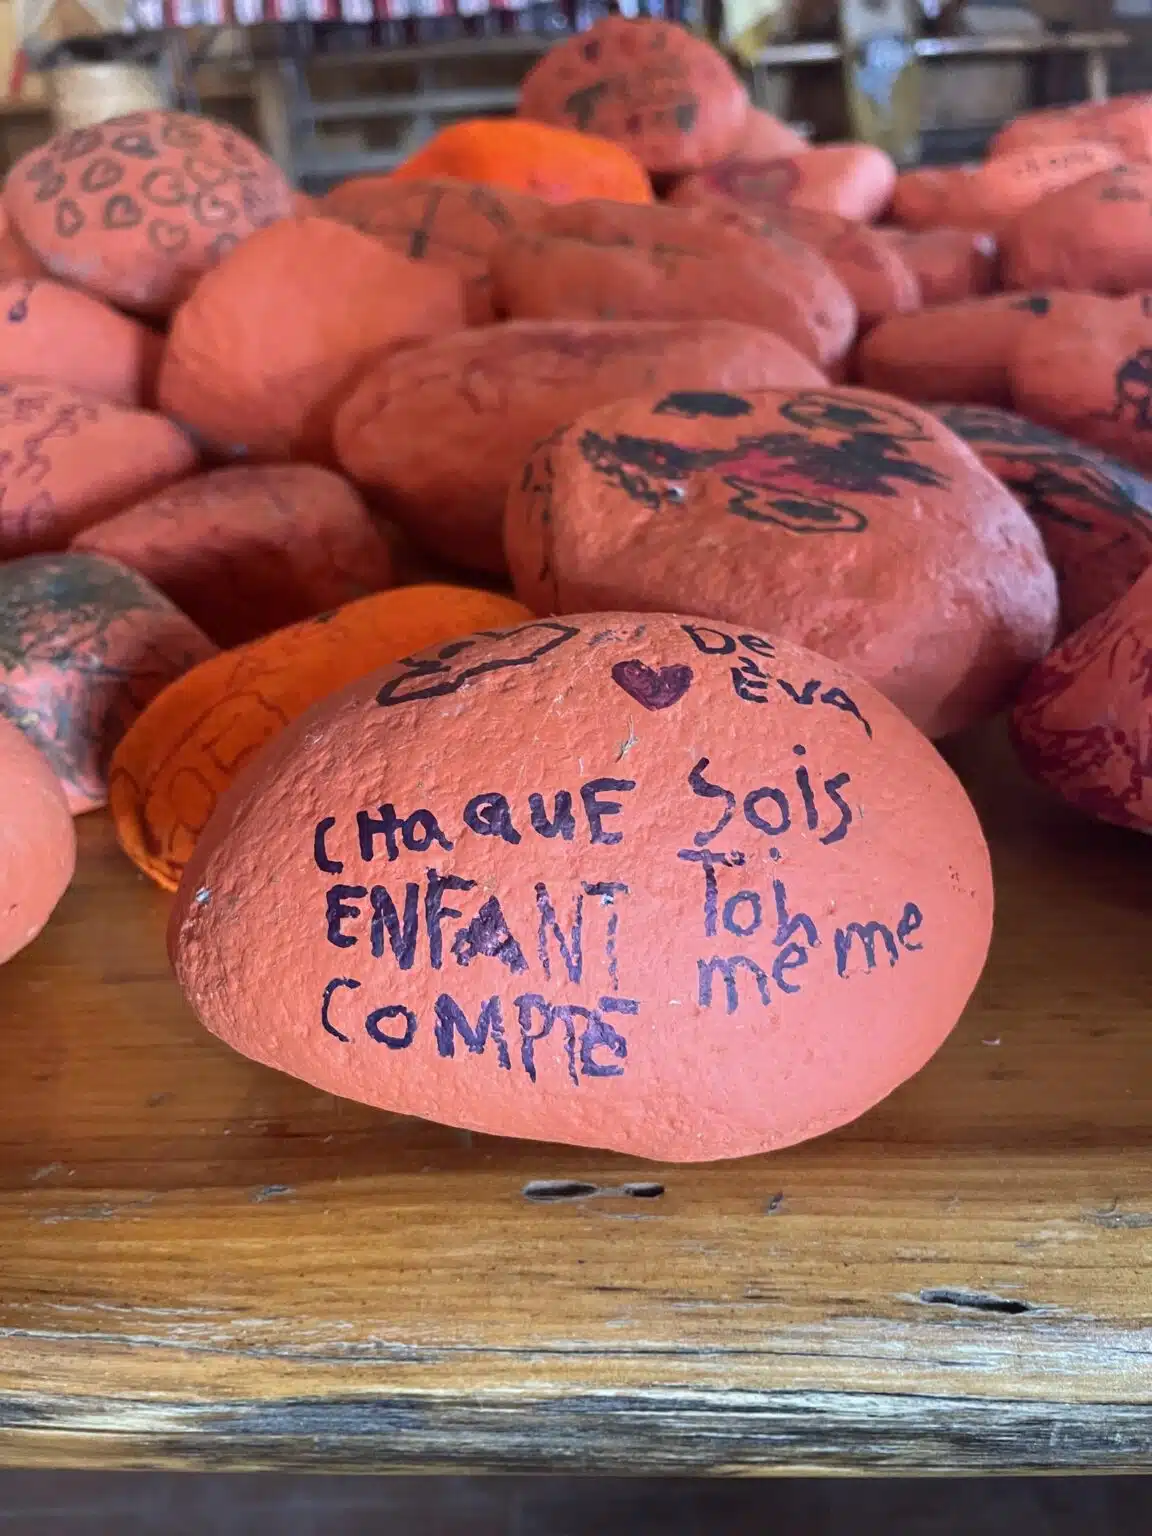 De
Èva
CHaQUE
ENFANT
COMPTE
Sois
Toi
même